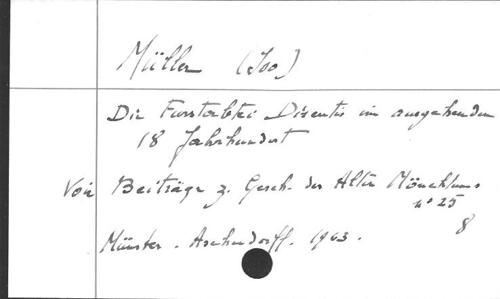 Müller (Iso)
Die Furstabtei Disentis im ausgehenden
18 Jahrhundert
Voir Beiträge z. Gesch. der Alten Mönchtums
n° 25
8
Münster. Aschendorff. 1963.